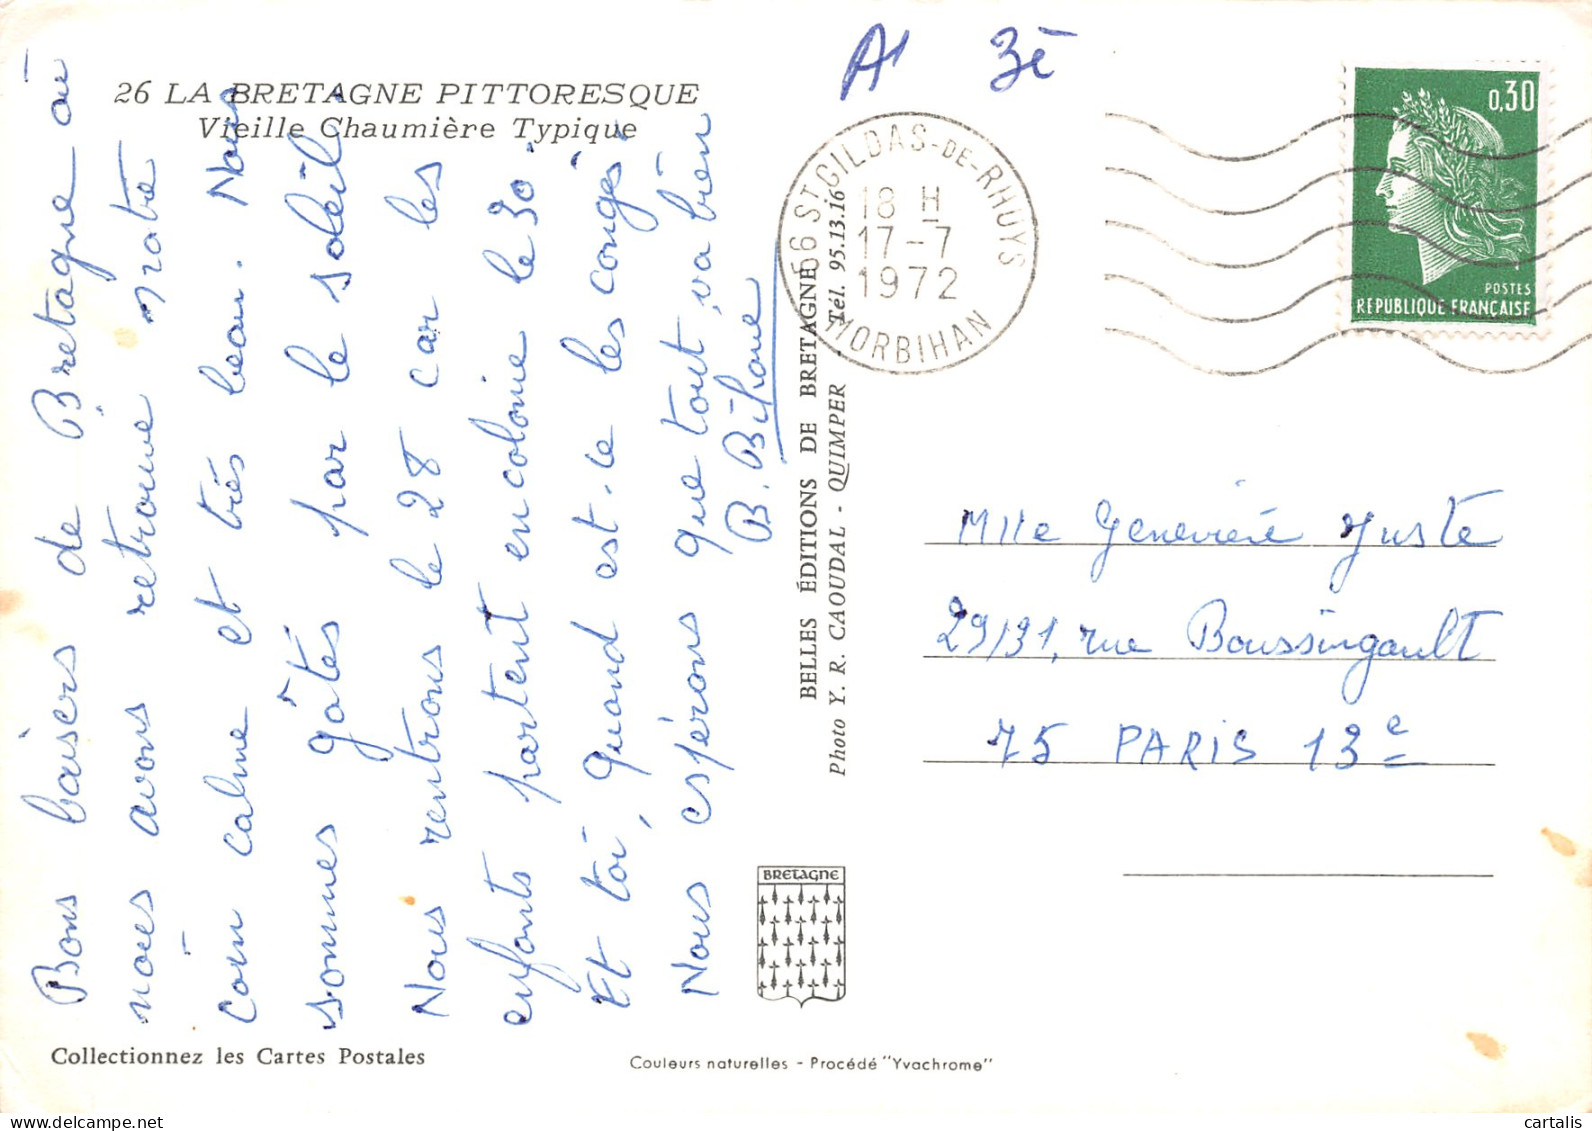 26 LA BRETAGNE PITTORESQUE
Vieille Chaumière Typique
Bons baisers de Bretagne où
nous avons retrouvé notre
coin calme et très beau. Nous
sommes gâtés par le soleil.
Nous rentrons le 28 car les
enfants partent en colonie le 30
Et toi, quand est-ce les congés
Nous espérons que tout va bien
B.
BELLES ÉDITIONS DE BRETAGNE
Photo Y. R. CAOUDAL - QUIMPER - Tél. 95.13.16
A1 3è
56 ST GILDAS-DE-RHUYS
18 H
17-7
1972
MORBIHAN
0,30
POSTES
REPUBLIQUE FRANÇAISE
Mlle Geneviève Juste
29/31, rue Boussingault
75 PARIS 13e
BRETAGNE
Collectionnez les Cartes Postales
Couleurs naturelles - Procédé "Yvachrome"
www.delcampe.net
cartalis